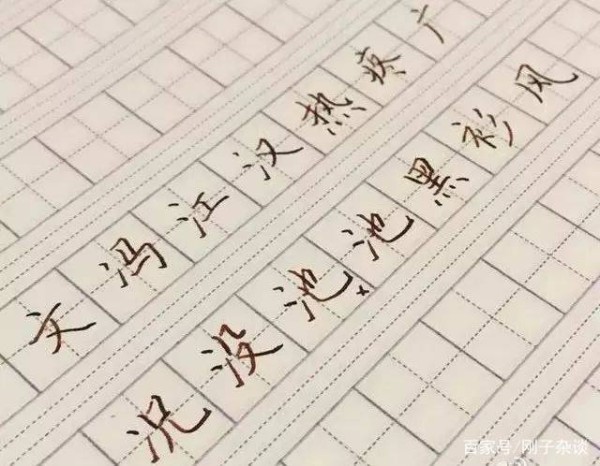 文冯江汉热疼广
况没池池黑衫风
百家号/刚子杂谈